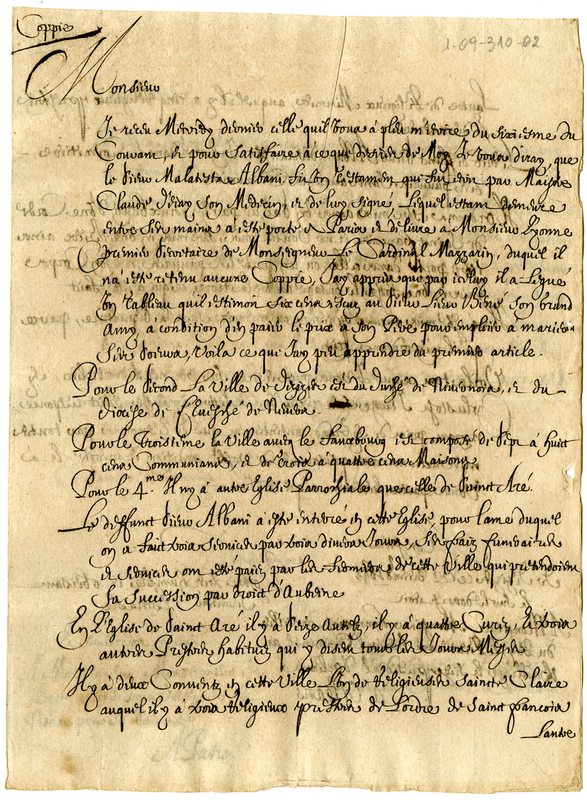 Coppie
1-09-310-02
Monsieur
Je receu Mercredy dernier celle quil vous a pleu mescrire du sixiesme du
Courant, et pour satisfaire a ce que desirez de Moy Je vous diray, que
le sieur Malatesta Albani fit un testament qui fut escrit par Maistre
Claude son Medecin, et de luy signé, Lequel estant demeuré
entre ses mains a esté porté a Paris et delivré a Monsieur Lyonne
premier secretaire de Monseigneur Le Cardinal Mazzarin, duquel il
n'a esté retenu aucune Coppie, Jay appris que par iceluy il a Legué
un Tableau quil estimoit six cens escuz au sieur son grand
Amy a condition d'en paier le prix a son Pere pour emploier a marier
ses soeurs, Voila ce que Jay peu apprendre du premier article.
Pour le second La Ville de Dezize est du Duché de Nivernois, et du
diocese de Evesché de Nevers
Pour le Troisieme la Ville avecq le fauxbourg est composé de sept a huict
cens Communians, et de trois a quattre cens Maisons
Pour le 4.me Il ny a autre Eglise Parrochiale que celle de Sainct Aré.
Le deffunct sieur Albani a esté enterré en cette Eglise, pour lame duquel
on a faict trois services par trois divers Jours, ses fraiz funeraires
et services ont esté paiez par les fermiers de cette Ville qui pretendoient
sa succession par droict d'Aubeine
En L'Eglise de Sainct Aré il y a seize Autelz, il y a quattre Curez, et trois
autres Prestres habituez qui y disent tous les Jours Messes
Il y a deux Conventz en cette Ville L'un de Religieuses saincte Claire
auquel il y a trois Religieux prestres de Lordre de Sainct francois
Lautre